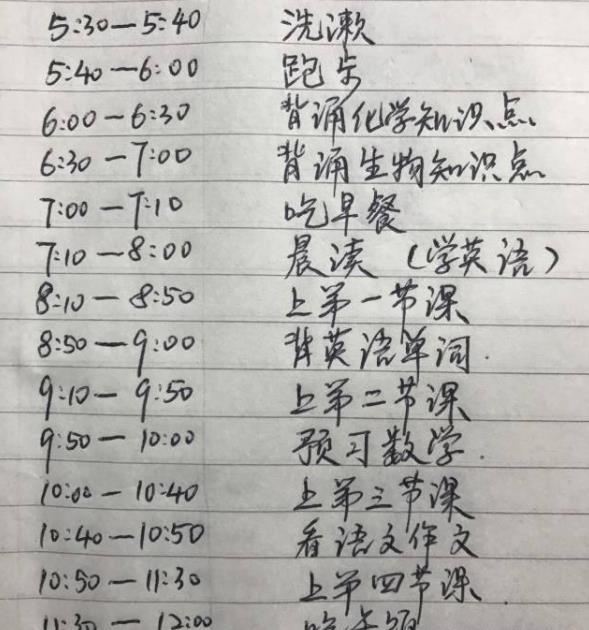 5:30—5:40 洗漱
5:40—6:00 跑步
6:00—6:30 背诵化学知识点
6:30—7:00 背诵生物知识点
7:00—7:10 吃早餐
7:10—8:00 晨读 (学英语)
8:10—8:50 上第一节课
8:50—9:00 背英语单词.
9:10—9:50 上第二节课
9:50—10:00 预习数学.
10:00—10:40 上第三节课
10:40—10:50 看语文作文
10:50—11:30 上第四节课.
11:30—12:00 吃午饭